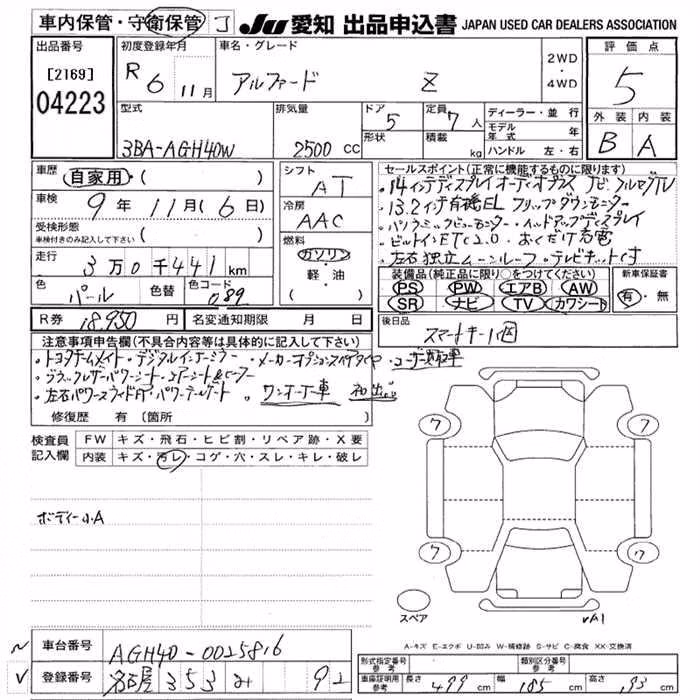 車内保管・守衛保管 J JU 愛知 出品申込書 JAPAN USED CAR DEALERS ASSOCIATION
出品番号
[2169]
04223
初度登録年月
R 6 11月
車名・グレード
アルファード Z
2WD
・
4WD
評価点
5
外装 内装
B A
型式
3BA-AGH40W
排気量
2500 CC
ドア
5
形状
定員
7人
積載
kg
ディーラー・並行
モデル年式 年
ハンドル 左・右
車歴
自家用・( )
車検
9年11月(6日)
受検形態
車検付きのみ記入して下さい ( )
走行
3万0千441km
色
パール
色替
色コード
089
シフト
AT
冷房
AAC
燃料
ガソリン
・
軽・油
( )
R券 18,950円 名変通知期限 月 日
セールスポイント(正常に機能するものに限ります)
・14インチディスプレイオーディオプラス ナビ フルセグTV
・13.2インチ有機EL フリップダウンモニター
・パノラミックビューモニター ・ヘッドアップディスプレイ
・ビルトインETC2.0 ・おくだけ充電
・左右独立ムーンルーフ ・テレビキット付
装備品(純正品に限り○をつけてください)
PS PW エアB AW
SR ナビ TV カワシート
新車保証書
有・無
後日品
スマートキー1個
注意事項申告欄(不具合内容等は具体的に記入して下さい)
・トヨタチームメイト ・デジタルインナーミラー ・メーカーオプションスペアタイヤ ・ユーザー買取車
・ブラックレザーパワーシート ・エアーシート&ヒーター
・左右パワースライドドア ・パワーテールゲート 。ワンオーナー車 初出品
修復歴 有(箇所 )
検査員記入欄
FW キズ・飛石・ヒビ割・リペア跡・X要
内装 キズ・汚レ・コゲ・穴・スレ・キレ・破レ
ボディー小A
7 7
7 7
スペア
A1
A-キズ E-エクボ U-凹み W-補修跡 S-サビ C-腐食 XX-交換済
車台番号 AGH40-0025816
登録番号 名古屋 353 92
型式指定番号 参考
類別区分番号 参考
車庫証明用 参考 長さ 499cm 幅 185cm 高さ 193cm